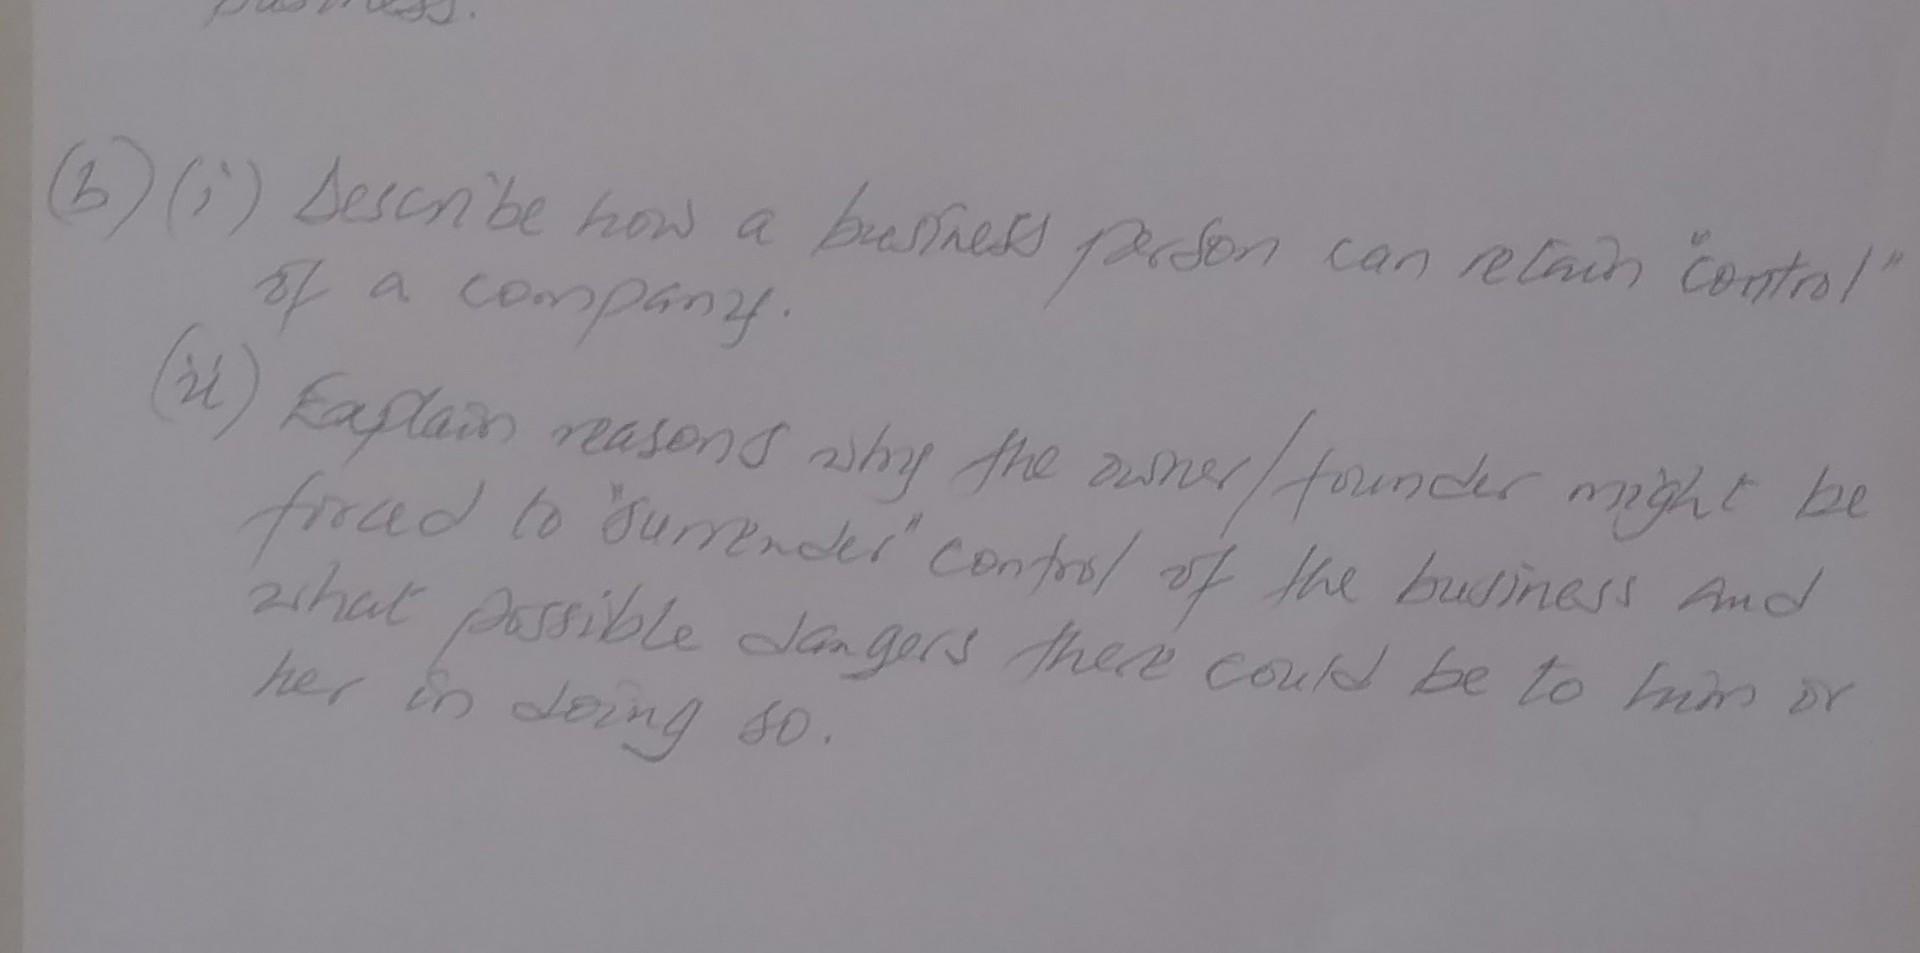 business.
(b) (i) Describe how a business person can retain "control"
of a company.
(ii) Explain reasons why the owner/founder might be
forced to "surrender" control of the business and
what possible dangers there could be to him or
her in doing so.